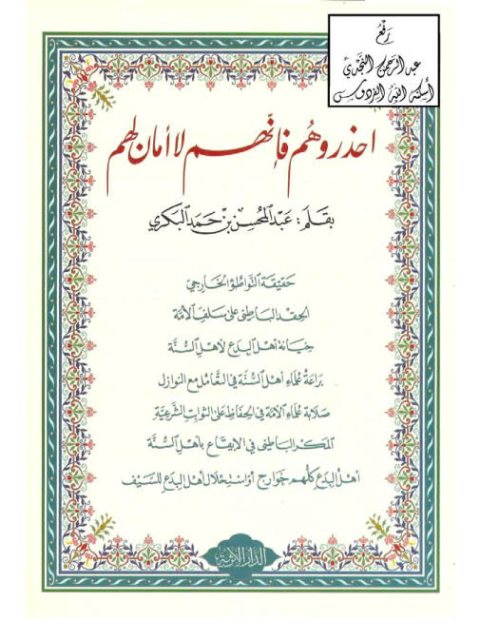 رفع
عبد الرحمن النجدي
أسكنه الله الفردوس
احذروهم فإنهم لا أمان لهم
بقلم: عبد المحسن بن حمد البكري
حقيقة التواطؤ الخارجي
الحقد الباطني على سلف الأمة
خيانة أهل البدع لأهل السنة
براعة علماء أهل السنة في التعامل مع النوازل
صلابة علماء الأمة في الحفاظ على الثوابت الشرعية
المكر الباطني في الإيقاع بأهل السنة
أهل البدع كلهم خوارج أو استحلال أهل البدع للسيف
الدار الأثرية